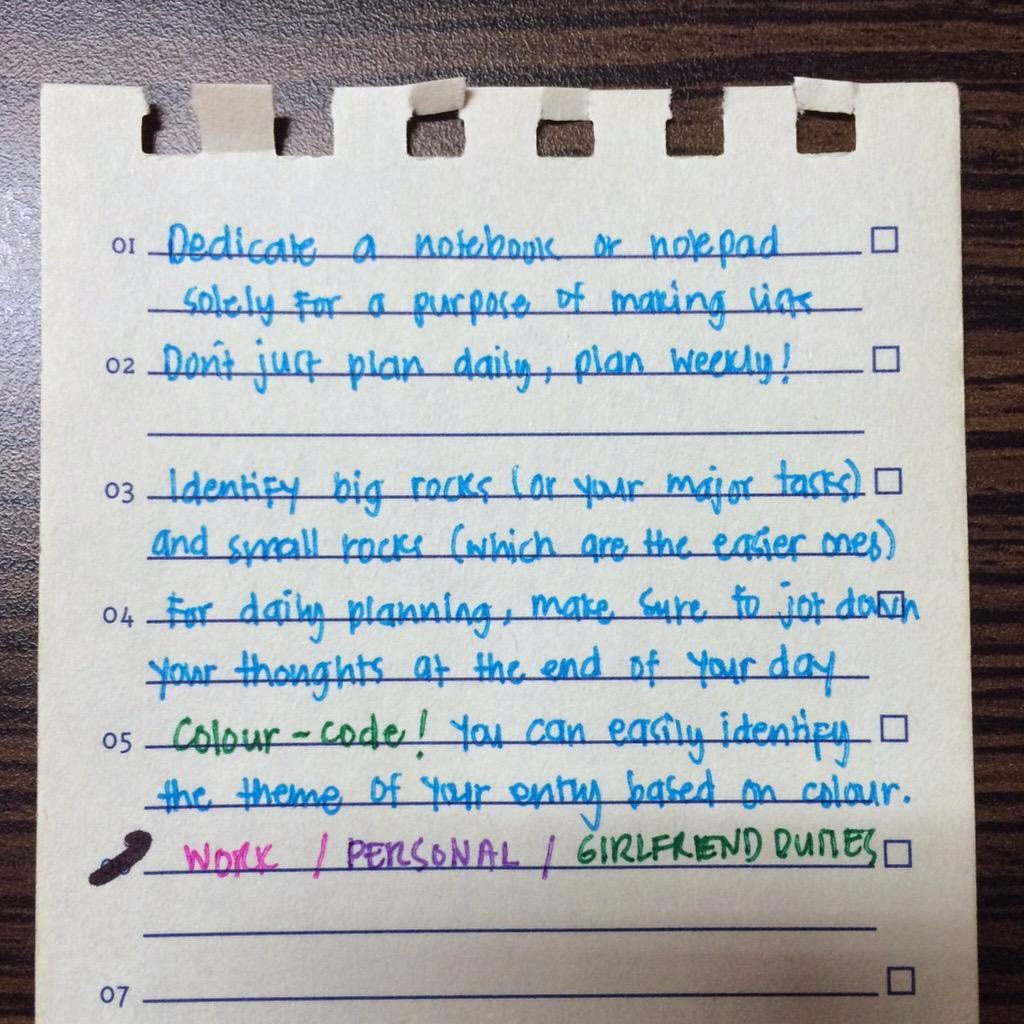 01 Dedicate a notebook or notepad
solely for a purpose of making lists
02 Don't just plan daily, plan weekly!
03 Identify big rocks (or your major tasks)
and small rocks (which are the easier ones)
04 For daily planning, make sure to jot down
your thoughts at the end of your day
05 Colour-code! You can easily identify
the theme of your entry based on colour.
WORK / PERSONAL / GIRLFRIEND DUTIES
07